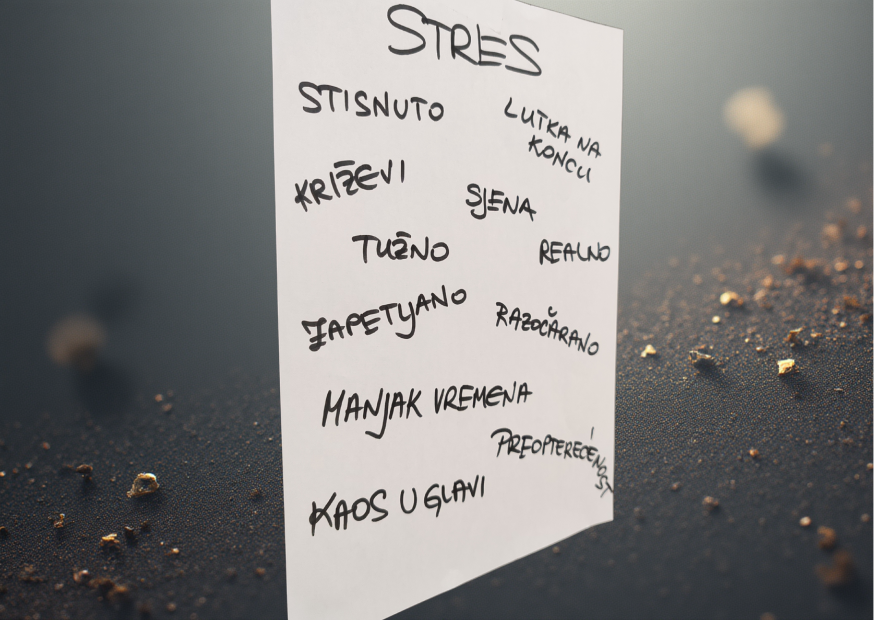 STRES
STISNUTO
LUTKA NA
KONCU
KRIŽEVI
SJENA
TUŽNO
REALNO
ZAPETLJANO
RAZOČARANO
MANJAK VREMENA
PREOPTEREĆENOST
KAOS U GLAVI